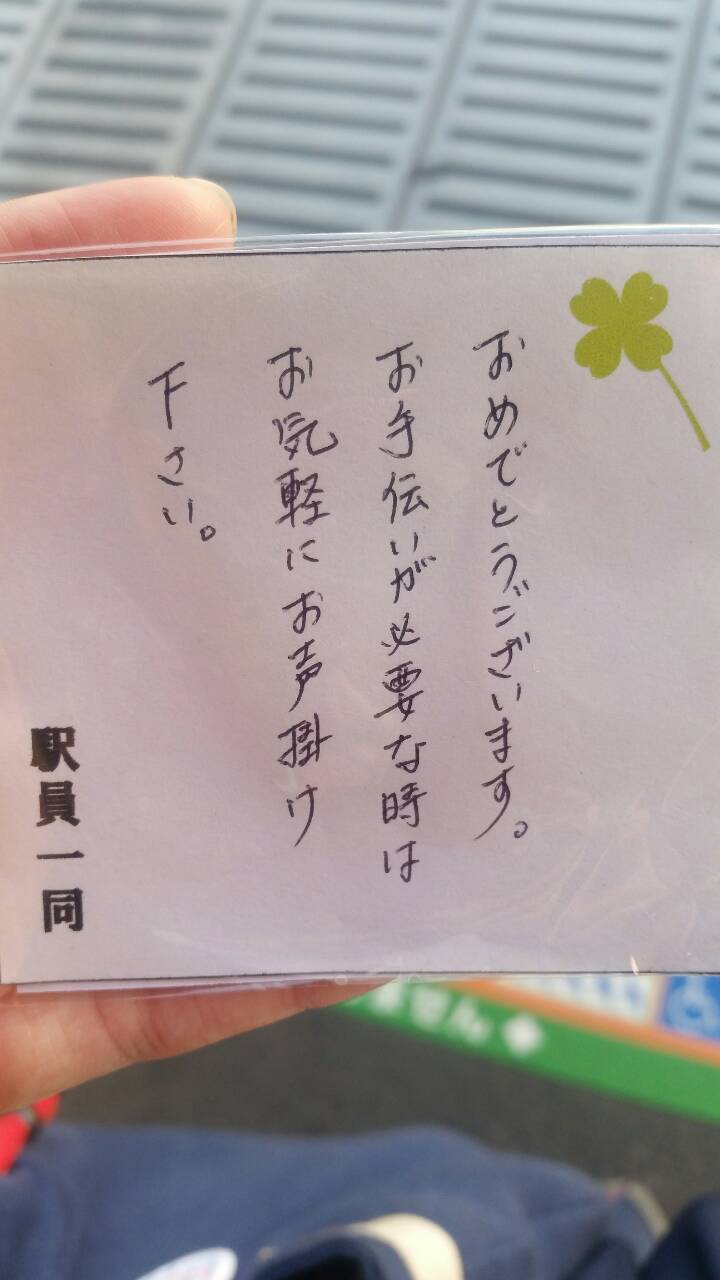 おめでとうございます。
お手伝いが必要な時は
お気軽にお声掛け
下さい。
駅員一同
ません